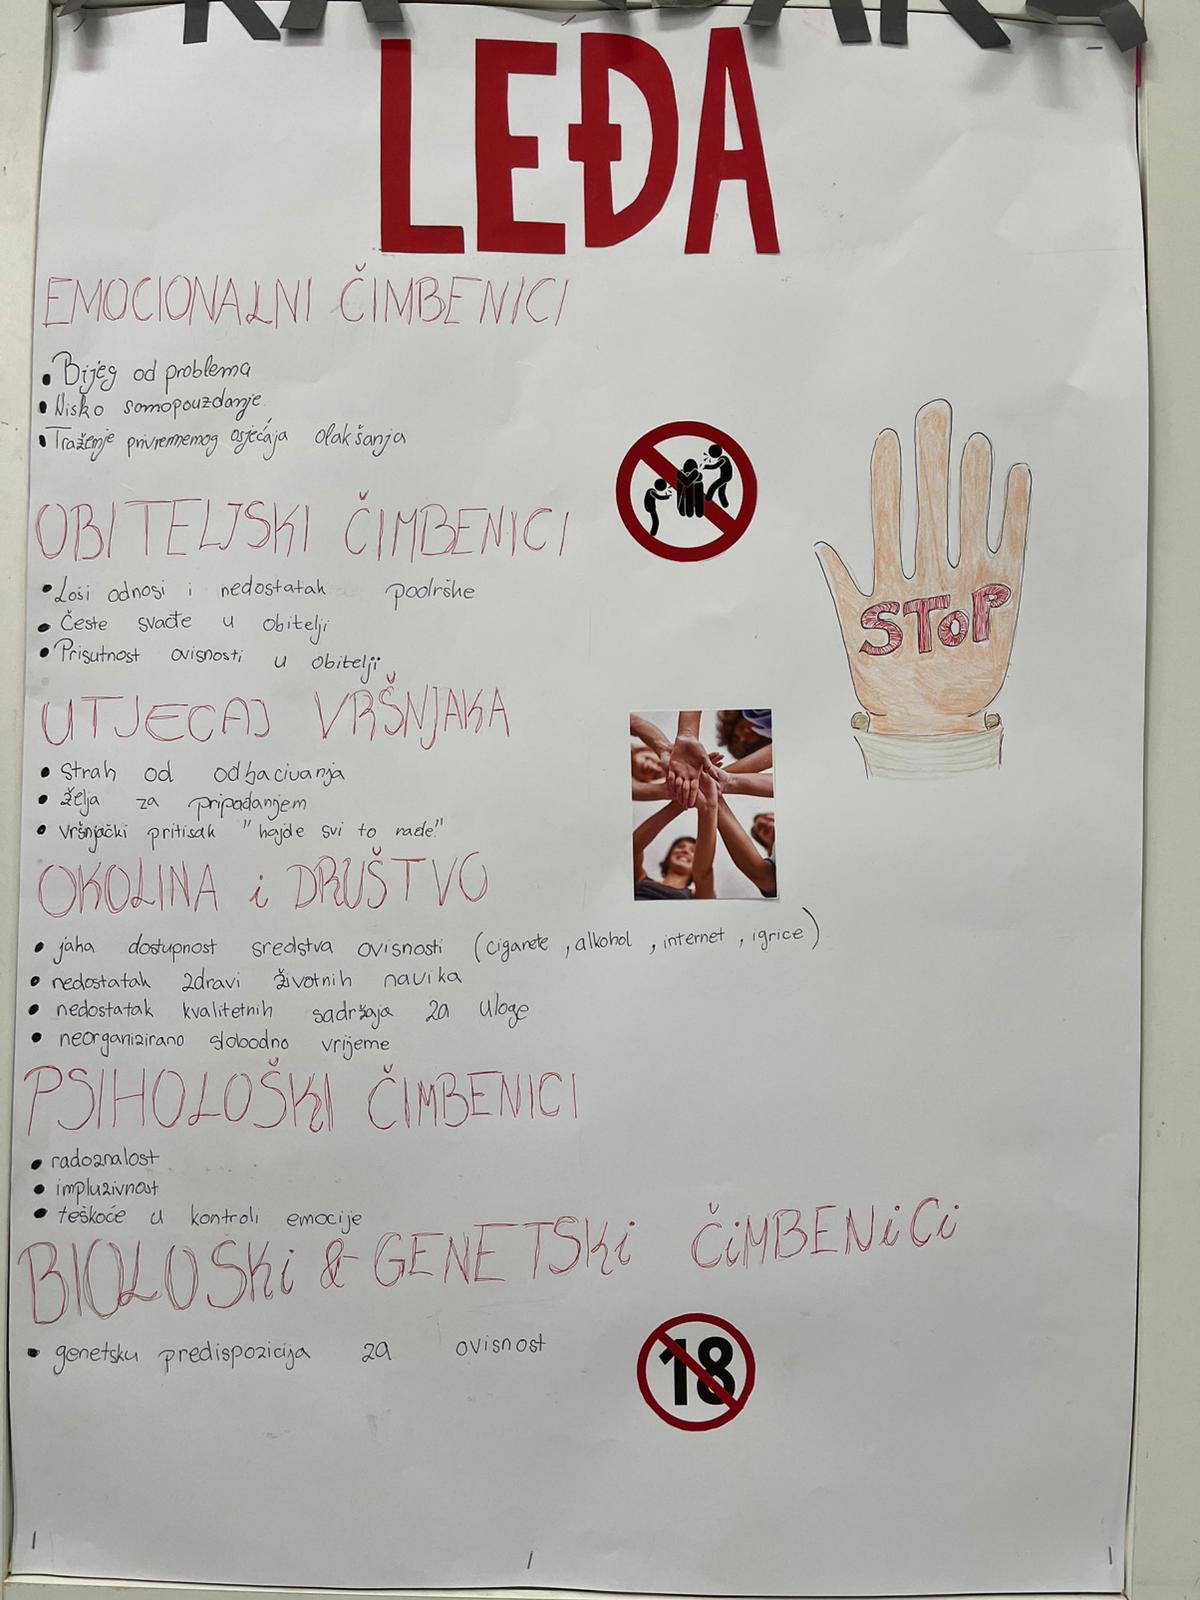 LEĐA
EMOCIONALNI ČIMBENICI
• Bijeg od problema
• Nisko samopouzdanje
• Traženje privremenog osjećaja olakšanja
OBITELJSKI ČIMBENICI
• Loši odnosi i nedostatak podrške
• Česte svađe u obitelji
• Prisutnost ovisnosti u obitelji
UTJECAJ VRŠNJAKA
• strah od odbacivanja
• želja za pripadanjem
• vršnjački pritisak "hajde svi to rade!"
OKOLINA i DRUŠTVO
• jaka dostupnost sredstva ovisnosti (cigarete, alkohol, internet, igrice)
• nedostatak zdravi životnih navika
• nedostatak kvalitetnih sadržaja za uloge
• neorganizirano slobodno vrijeme
PSIHOLOŠKI ČIMBENICI
• radoznalost
• impluzivnost
• teškoće u kontroli emocije
BIOLOŠKi & GENETSKi ČiMBENiCi
• genetsku predispozicija za ovisnost
STOP
18